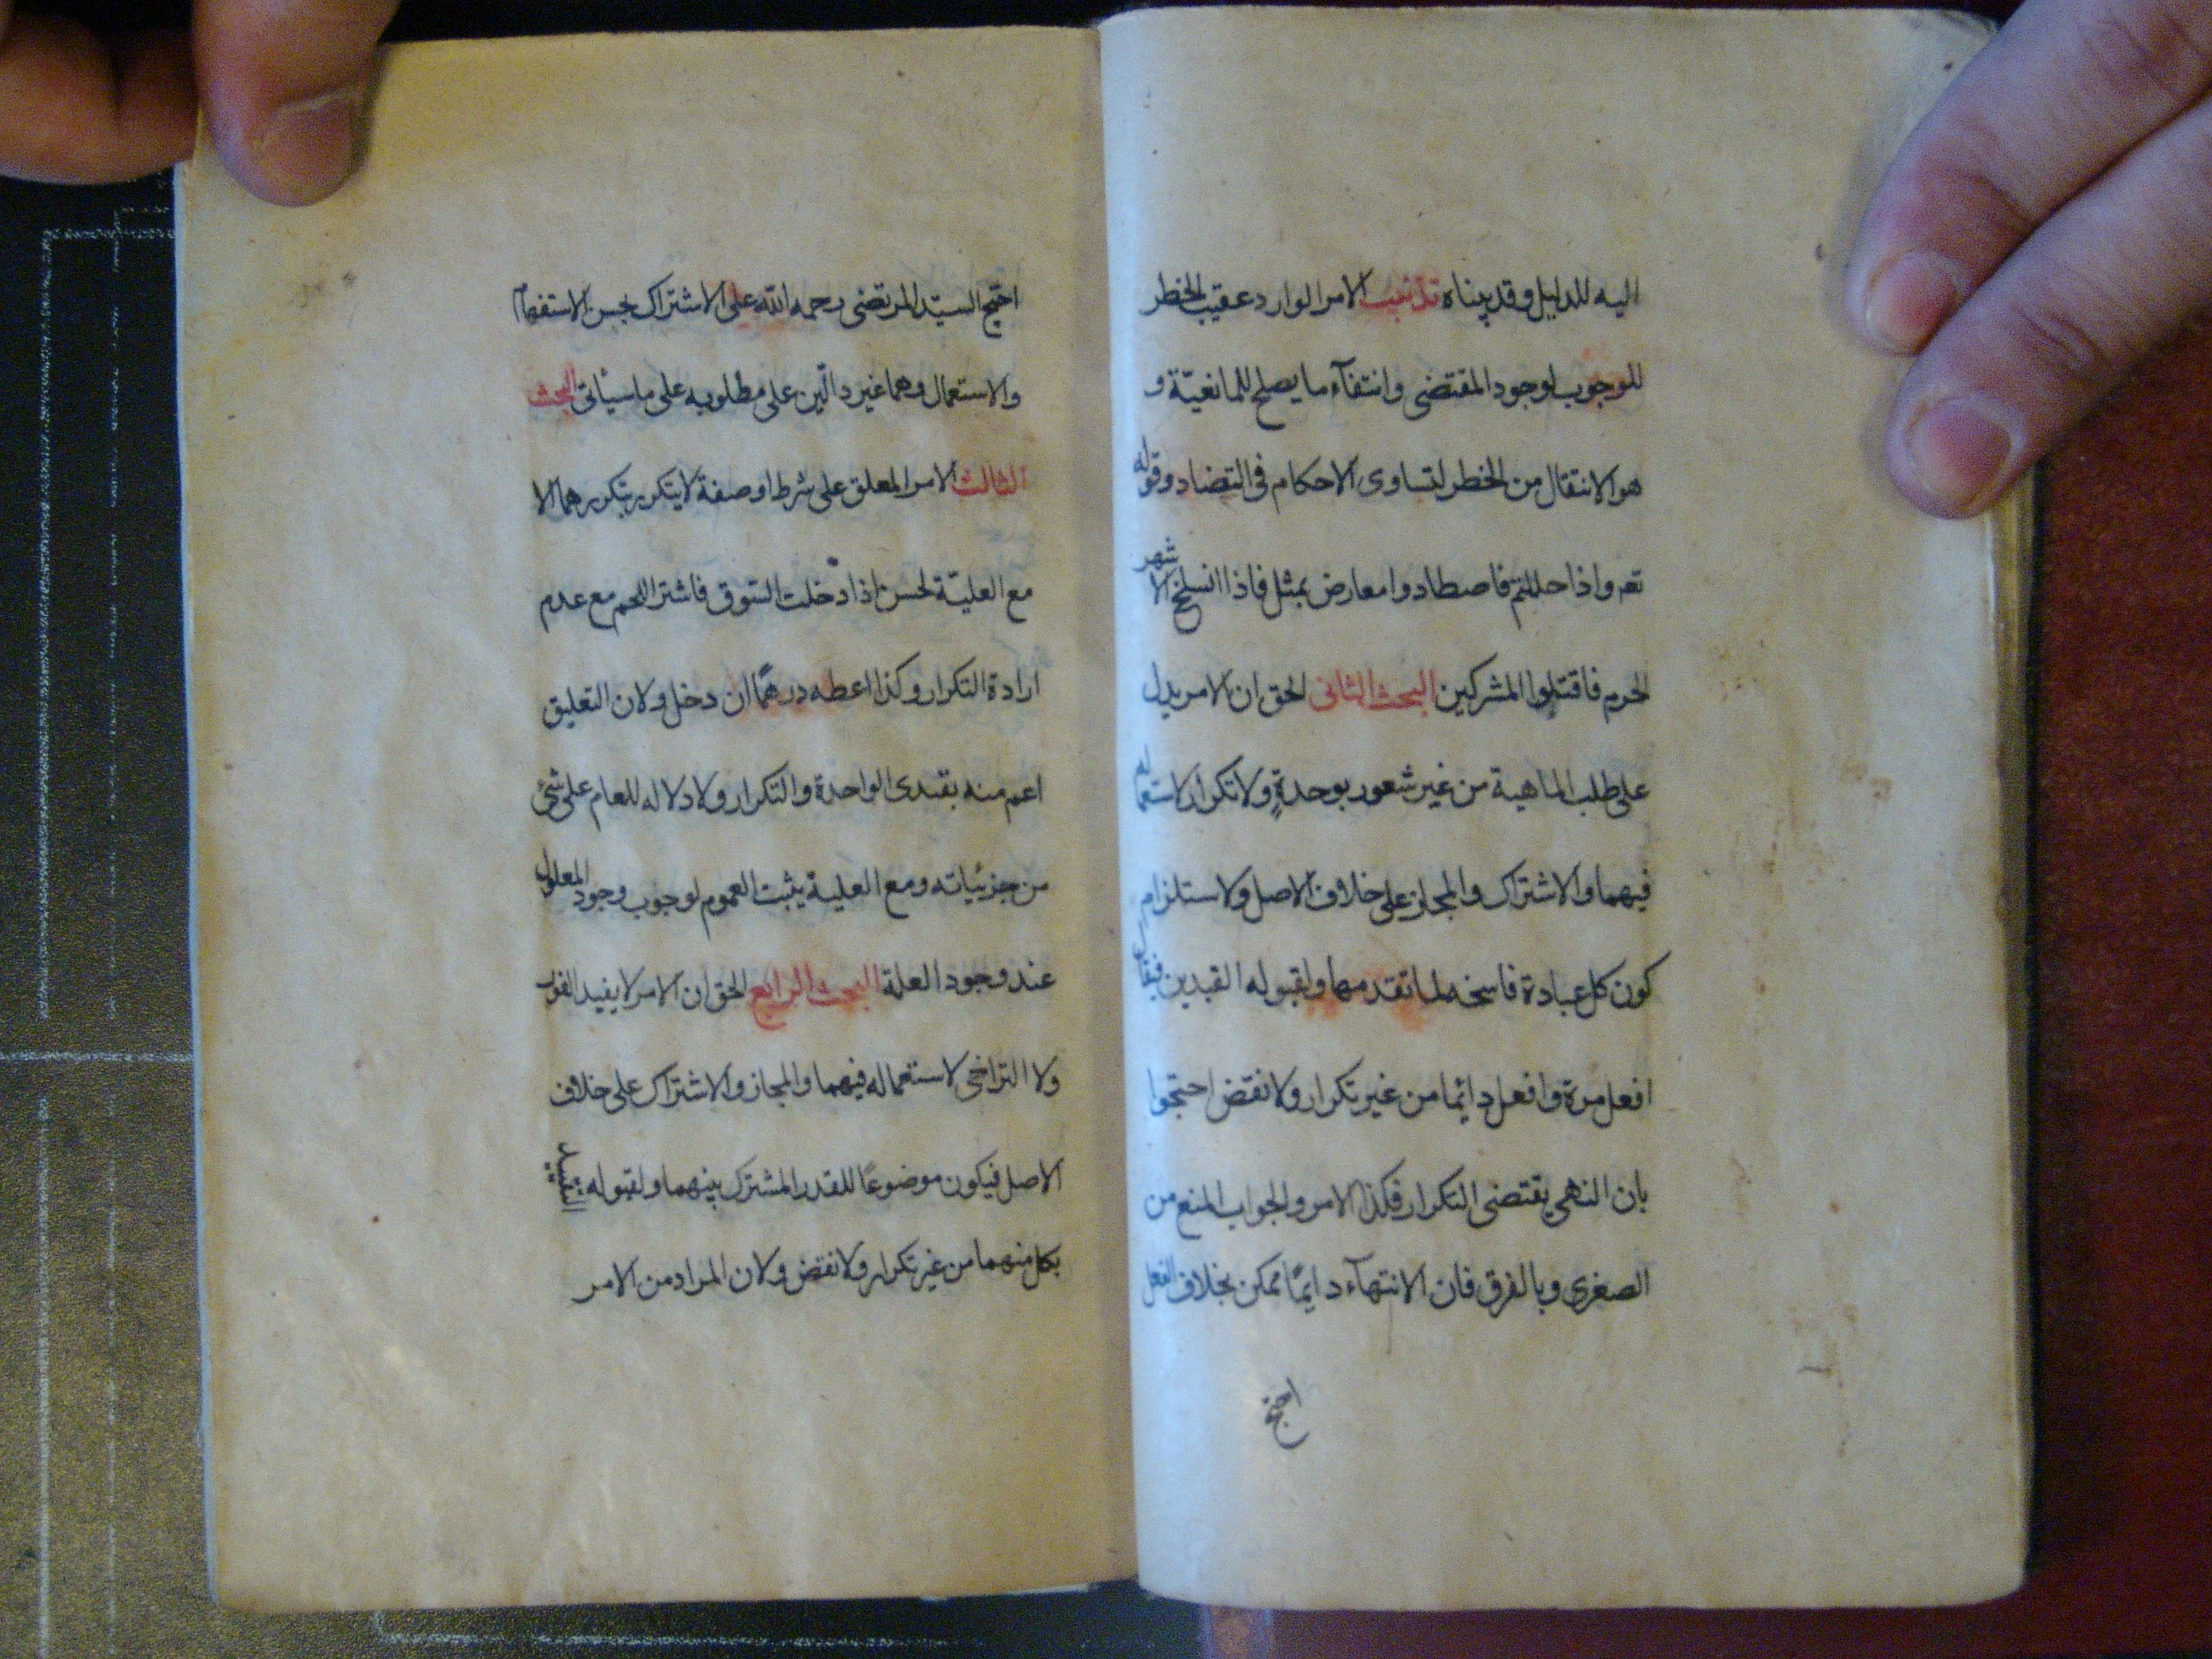 اليه للدليل وقد بيناه تذنيب الامر الوارد عقيب الحظر
للوجوب لوجود المقتضى وانتفآء ما يصلح للمانعيّة و
هو الانتقال من الحظر لتساوى الاحكام فى التضاد وقوله
تعم واذا حللتم فاصطادوا معارض بمثل فاذا انسلخ الاشهر
الحرم فاقتلوا المشركين البحث الثانى الحق ان الامر يدل
على طلب الماهية من غير شعور بوحدةٍ ولا تكرار لاستعماله
فيهما والاشتراك والمجاز على خلاف الاصل ولاستلزام
كون كل عبادة فاسخه لما تقدمها ولقبوله القيدين فيقال
افعل مرة وافعل دائما من غير تكرار ولا نقض احتجوا
بان النهى يقتضى التكرار فكذا الامر والجواب المنع من
الصغرى وبالفرق فان الانتهآء دايمًا ممكن بخلاف الفعل
احتج
احتج السيّد المرتضى رحمه الله على الاشتراك بحسن الاستفهام
والاستعمال وهما غير دالّين على مطلوبه على ما سيأتى البحث
الثالث الامر المعلق على شرط او صفة لا يتكرر بتكررهما الا
مع العليّة لحسن اذا دخلت السّوق فاشتر اللحم مع عدم
ارادة التكرار وكذا اعطه درهمًا ان دخل ولان التعليق
اعم منه بقيدى الواحدة والتكرار ولا دلاله للعام على شئ
من جزئياته ومع العلية يثبت العموم لوجوب وجود المعلول
عند وجود العلة البحث الرابع الحق ان الامر لا يفيد الفور
ولا التراخى لاستعماله فيهما والمجاز والاشتراك على خلاف
الاصل فيكون موضوعًا للقدر المشترك بينهما ولقبوله التقييد
بكل منهما من غير تكرار ولا نقض ولان المراد من الامر